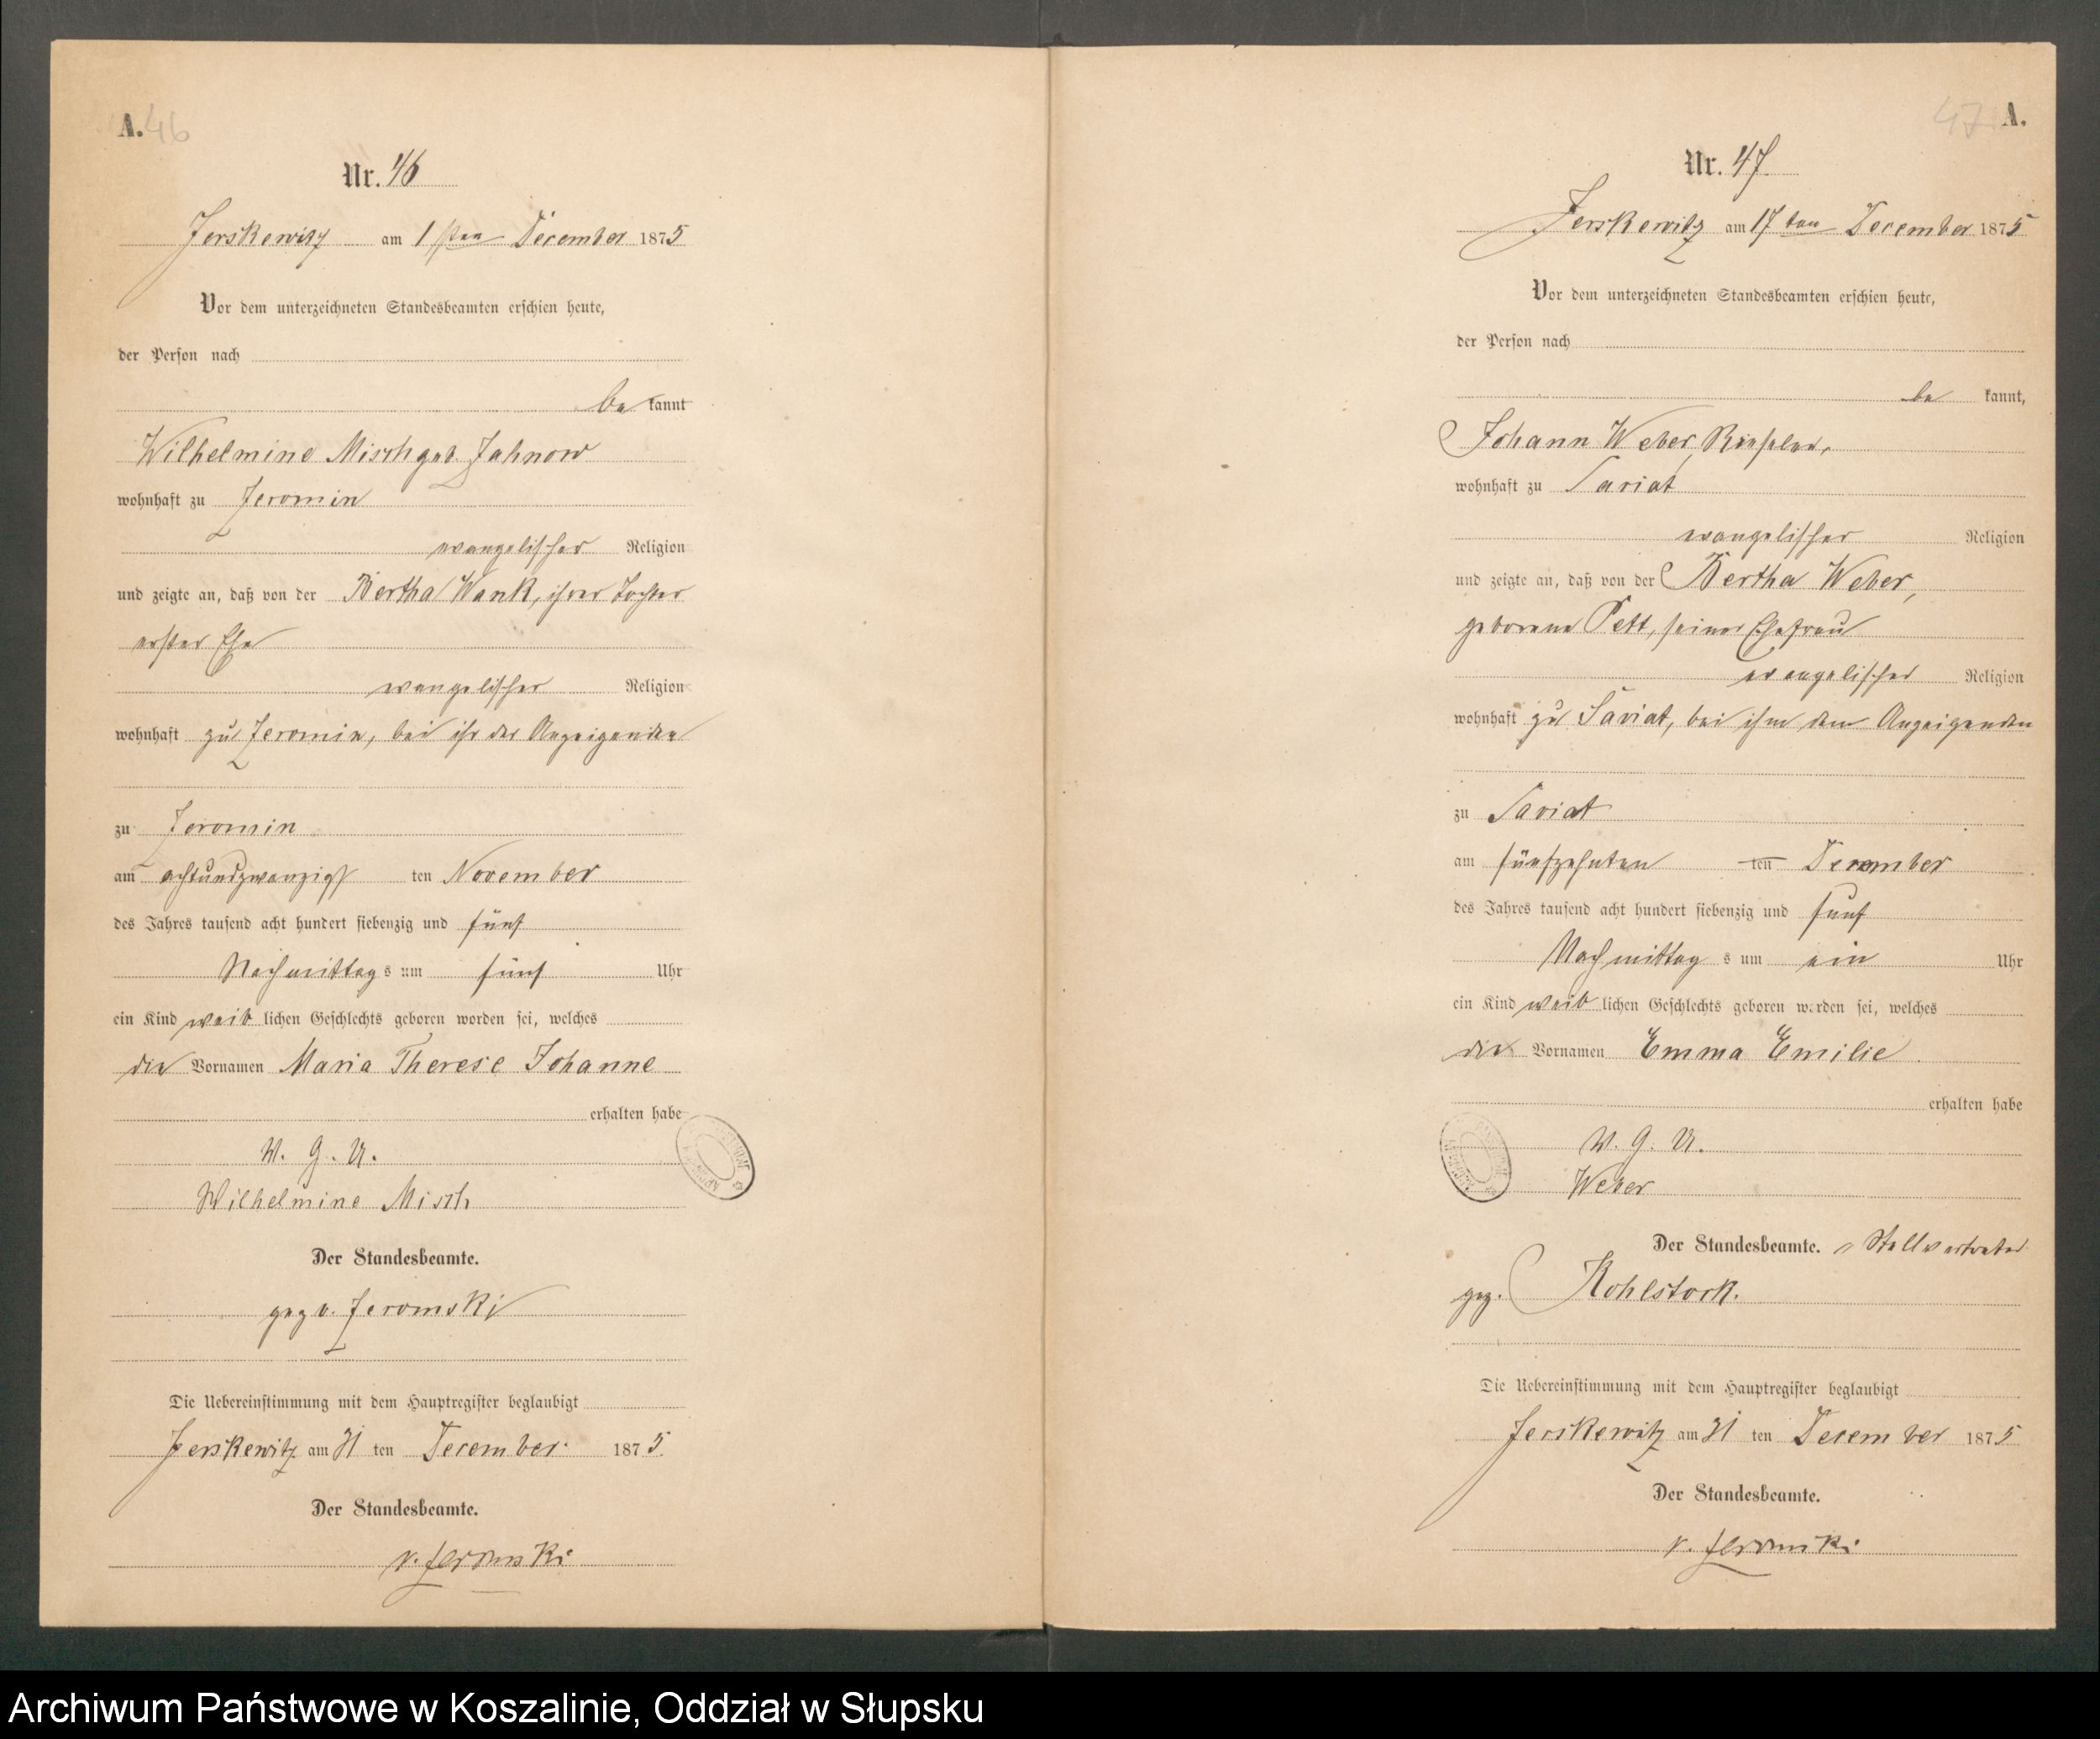 A. 46
Nr. 46
Jerskewitz am 1sten December 1875
Vor dem unterzeichneten Standesbeamten erschien heute,
der Person nach
be kannt
Wilhelmine Misch geb. Jahnow
wohnhaft zu Jeromin
evangelischer Religion
und zeigte an, daß von der Bertha Wank, ihrer Tochter
erster Ehe
evangelischer Religion
wohnhaft zu Jeromin, bei ihr der Anzeigenden
zu Jeromin
am achtundzwanzigst ten November
des Jahres tausend acht hundert siebenzig und fünf
Nachmittag s um fünf Uhr
ein Kind weib lichen Geschlechts geboren worden sei, welches
die Vornamen Maria Therese Johanne
erhalten habe
V. G. U.
Wilhelmine Misch
Der Standesbeamte.
gez v. Jeromski
Die Uebereinstimmung mit dem Hauptregister beglaubigt
Jerskewitz am 31 ten December 1875
Der Standesbeamte.
v. Jeromski
47 A.
Nr. 47
Jerskewitz am 17ten December 1875
Vor dem unterzeichneten Standesbeamten erschien heute,
der Person nach
be kannt,
Johann Weber,
wohnhaft zu Saviat
evangelischer Religion
und zeigte an, daß von der Bertha Weber,
geborene Pett, seiner Ehefrau
evangelischer Religion
wohnhaft zu Saviat, bei ihm dem Anzeigenden
zu Saviat
am fünfzehnten ten December
des Jahres tausend acht hundert siebenzig und fünf
Nachmittag s um ein Uhr
ein Kind weib lichen Geschlechts geboren worden sei, welches
die Vornamen Emma Emilie
erhalten habe
V. G. U.
Weber
Der Standesbeamte. Stellvertreter
gez. Kohlstock.
Die Uebereinstimmung mit dem Hauptregister beglaubigt
Jerskewitz am 31 ten December 1875
Der Standesbeamte.
v. Jeromski
Archiwum Państwowe w Koszalinie, Oddział w Słupsku